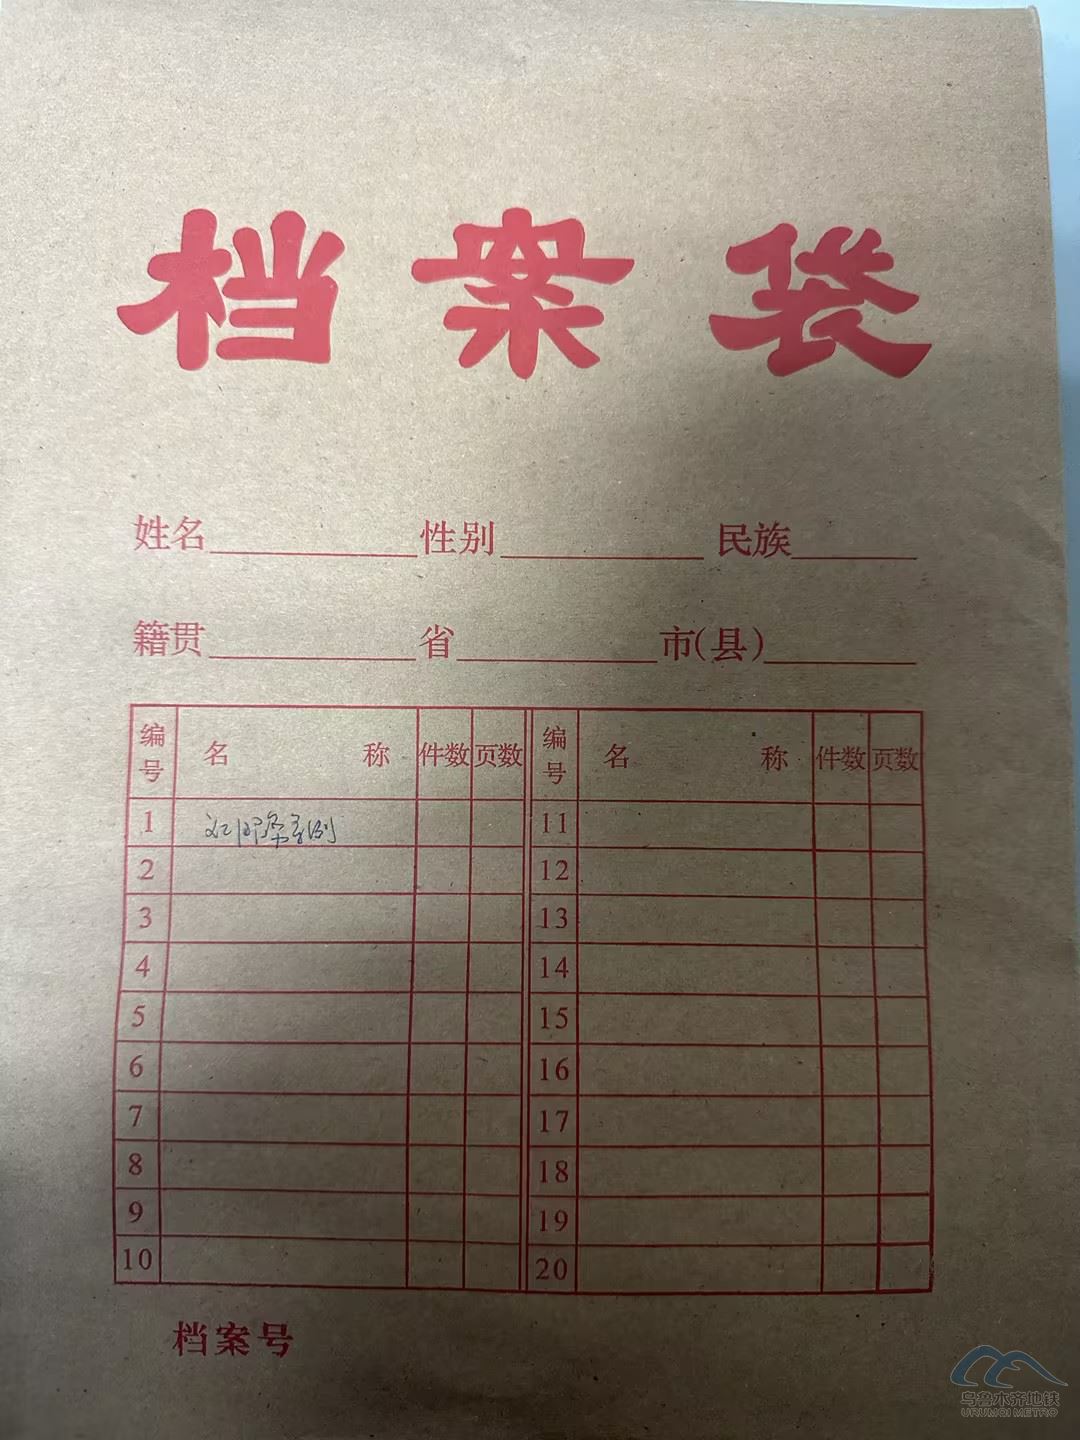 档案袋
姓名 性别 民族
籍贯 省 市(县)
编号 名称 件数 页数 编号 名称 件数 页数
1 11
2 12
3 13
4 14
5 15
6 16
7 17
8 18
9 19
10 20
档案号
乌鲁木齐地铁
URUMQI METRO